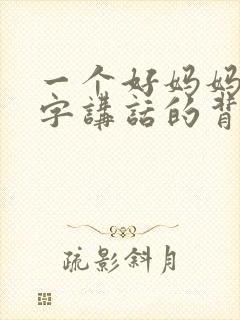 一个好妈妈
字講話的背
疏影斜月